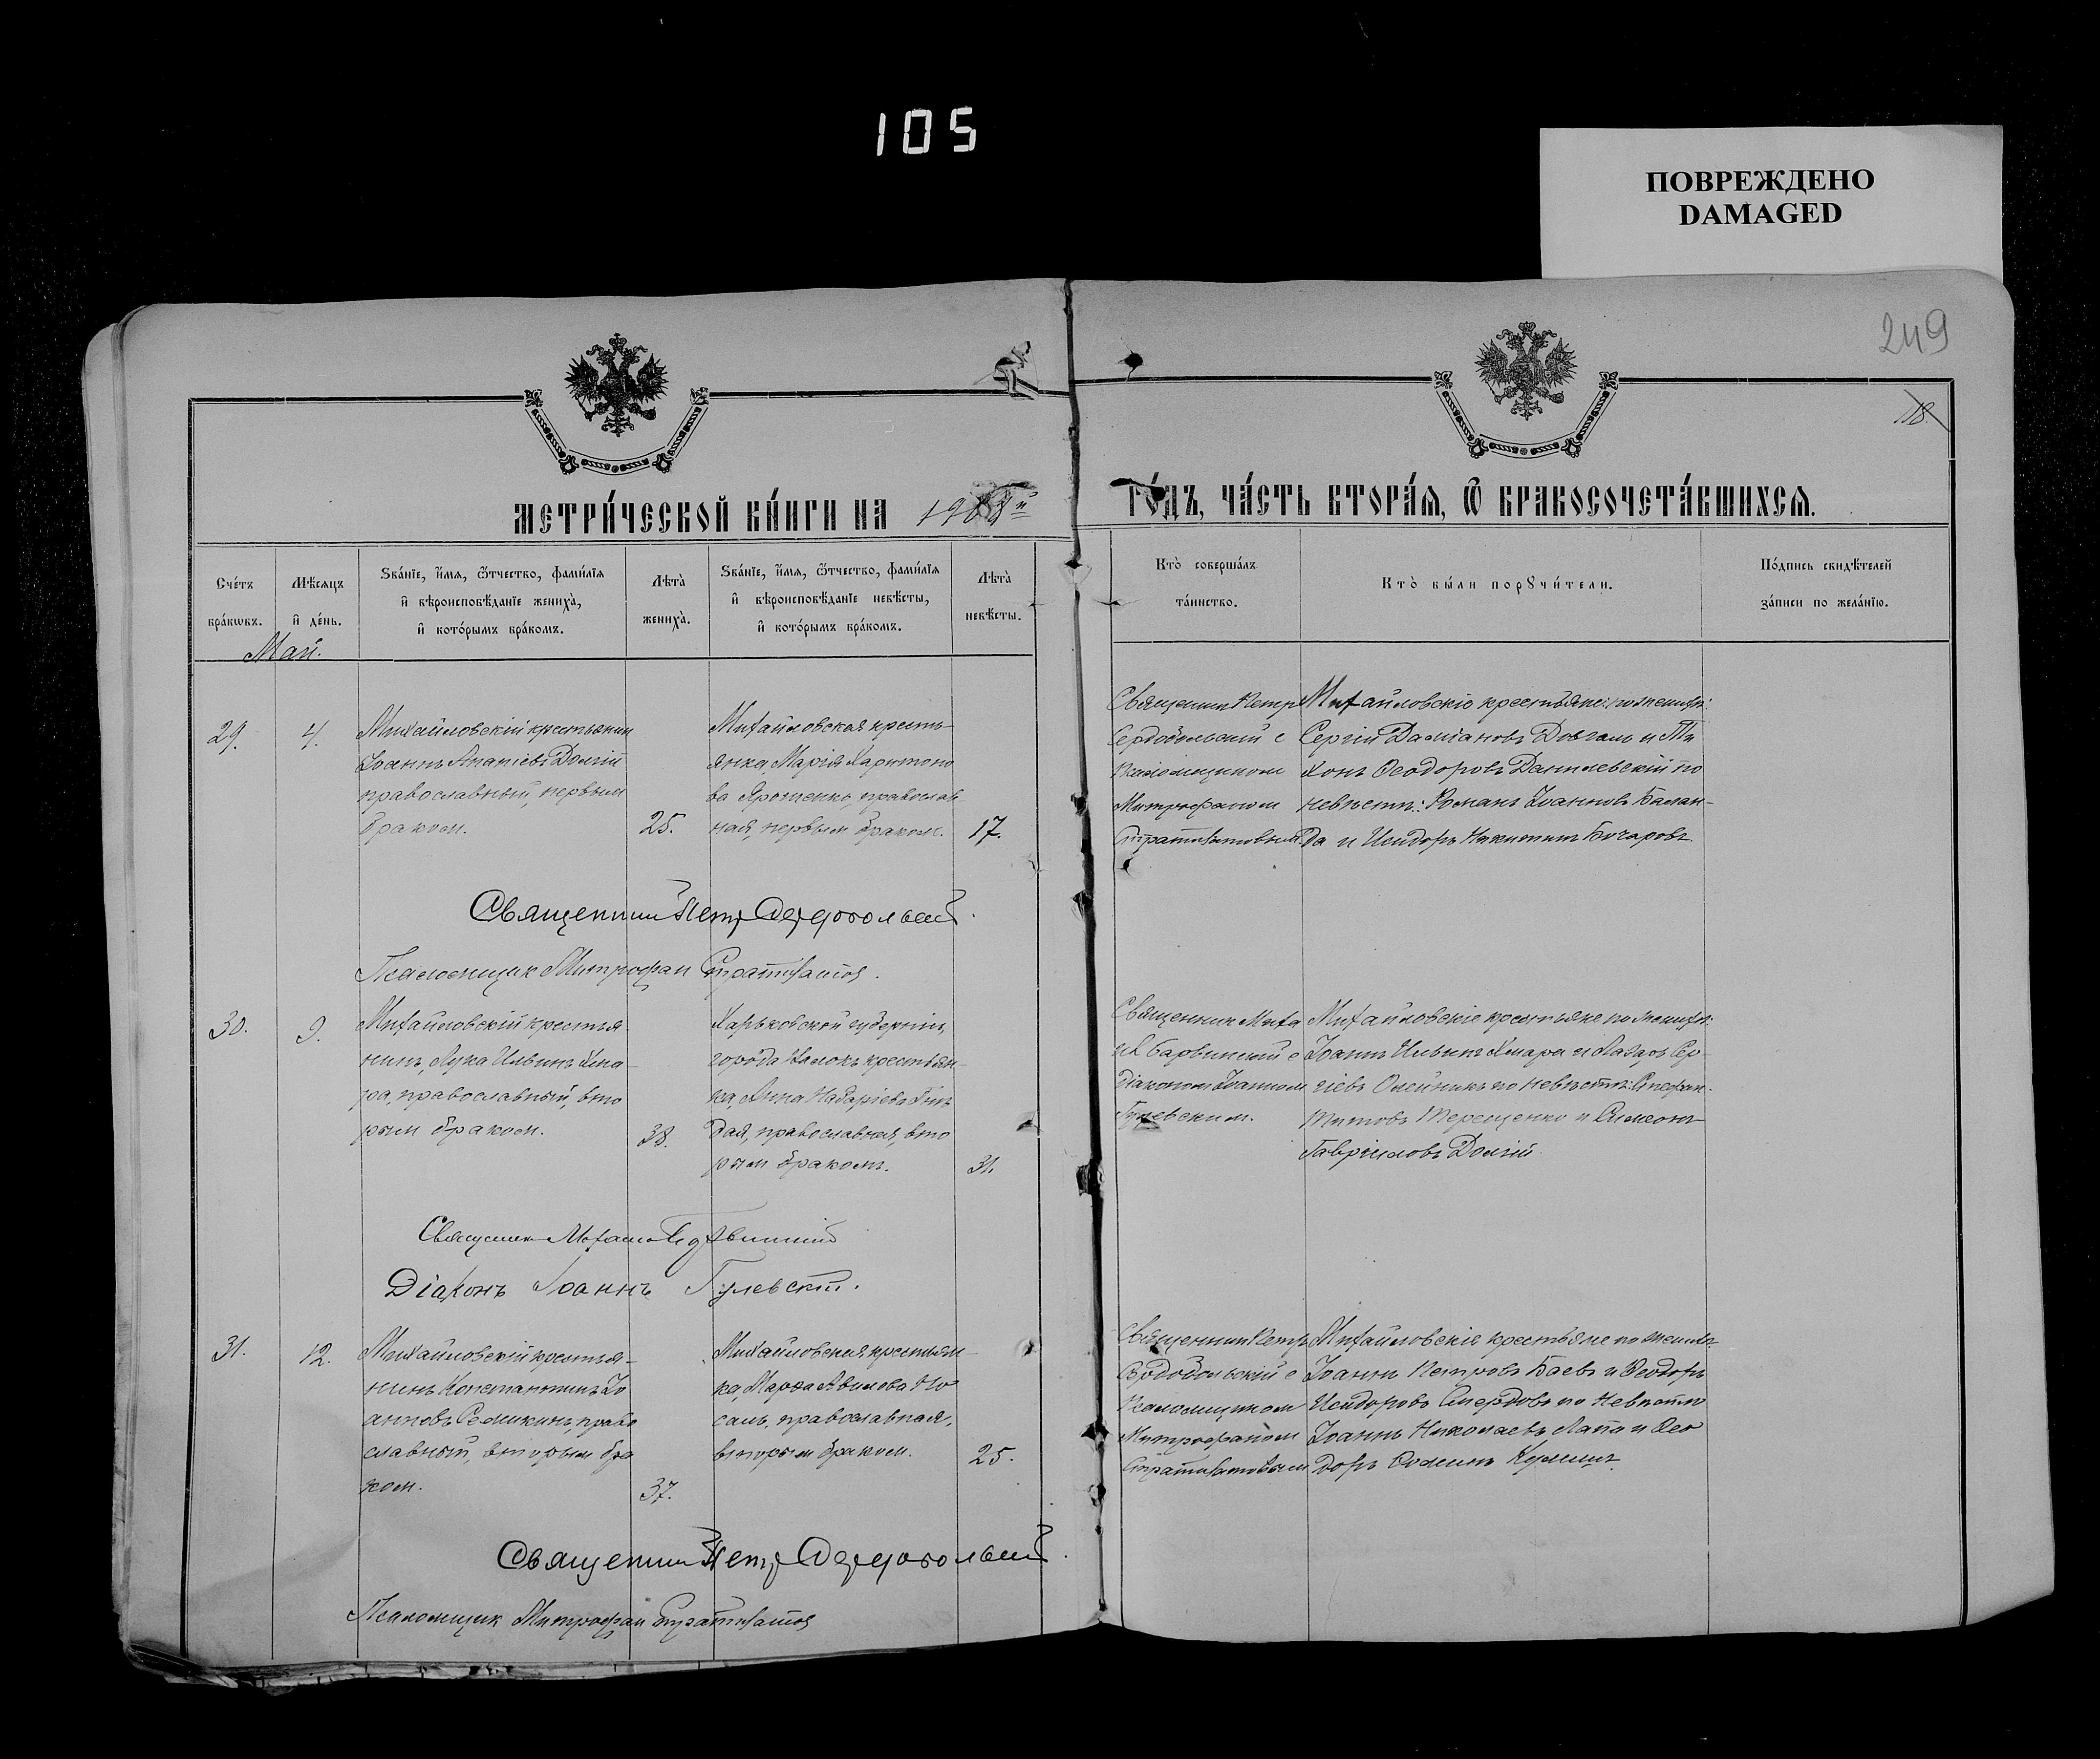 105
ПОВРЕЖДЕНО
DAMAGED
249
118
МЕТРИ́ЧЕСКОЙ КНИ́ГИ НА 1908й
ГО́ДЪ, ЧА́СТЬ ВТОРА́Я, Ѿ БРАКОСОЧЕТА́ВШИХСЯ.
Сче́тъ бра́кѡвъ.
Мѣ́сяцъ и҆ де́нь.
Ѕва́нїе, и҆́мя, ѻ҆́тчество, фамѝлїя
и҆ вѣроисповѣ́данїе жениха̀,
и҆ кото́рымъ бра́комъ.
Лѣта̀ жениха̀.
Ѕва́нїе, и҆́мя, ѻ҆́тчество, фамѝлїя
и҆ вѣроисповѣ́данїе невѣ́сты,
и҆ кото́рымъ бра́комъ.
Лѣта̀ невѣ́сты.
Кто̀ соверша́лъ
та́инство.
Кто̀ бы́ли порꙋчи́тели.
По́дпись свидѣ́телей
за́писи по жела́нїю.
Май.
29.
4.
Михайловскій крестьянин
Іоаннъ Ананіевъ Долгій
православный, первым
браком.
25.
Михайловская кресть-
янка, Марія Харитоно
ва Ярошенко, православ
ная, первым браком.
17.
Священник Петр
Сердобольский с
псаломщиком
Митрофаном
Стратилатовым
Михайловскіе крестьяне: по жениху:
Сергій Даміановъ Довгаль и Ти
хонъ Ѳеодоровъ Данилевскій по
невѣстѣ: Романъ Іоанновъ Балан-
да и Исидоръ Никитинъ Бочаровъ
Священник Петр Сердобольский.
Псаломщик Митрофан Стратилатов.
30.
9.
Михайловскій крестья-
нинъ Лука Ильинъ Хма-
ра, православный, вто
рым браком.
38.
Харьковской губерніи,
города Валокъ крестьян-
ка, Анна Назаріева Гни
дая, православная, вто
рым браком.
31.
Священник Миха
ил Барвинский с
діаконом Іоанном
Гулевским.
Михайловскіе крестьяне по жениху:
Іоаннъ Ильинъ Хмара и Лазарь Сер-
гіевъ Олейникъ по невѣстѣ: Стефан
Титовъ Терещенко и Симеонъ
Гавріиловъ Долгій.
Священник Михаил Барвинский
Діаконъ Іоаннъ Гулевскій.
31.
12.
Михайловскій крестья-
нинъ Константинъ Іо
анновъ Семикинъ, право
славный, вторым бра
ком.
37.
Михайловская крестьян-
ка, Марѳа Авилова Но
саль, православная,
вторым браком.
25.
Священник Петр
Сердобольскій с
псаломщиком
Митрофаном
Стратилатовым
Михайловскіе крестьяне по жениху
Іоаннъ Петровъ Баевъ и Ѳеодоръ
Исидоровъ Смердовъ по невѣстѣ
Іоаннъ Николаевъ Лапа и Ѳео
доръ Ѳоминъ
Священник Петр Сердобольский.
Псаломщик Митрофан Стратилатов